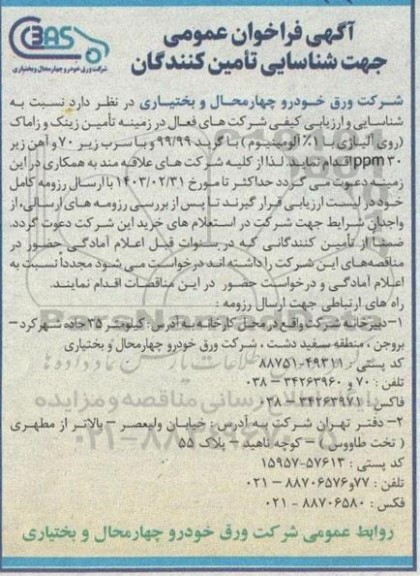 آگهی فراخوان عمومی
جهت شناسایی تأمین کنندگان
CBAS
شرکت ورق خودرو چهارمحال وبختیاری
شرکت ورق خودرو چهارمحال و بختیاری در نظر دارد نسبت به
شناسایی و ارزیابی کیفی شرکت های فعال در زمینه تأمین زینک و زاماک
(روی آلیاژی با ۱٪ آلومینیوم) با گرید ۹۹/۹۹ و با سرب زیر ۷۰ و آهن زیر
۳۰ ppm اقدام نماید. لذا از کلیه شرکت های علاقه مند به همکاری در این
زمینه دعوت می گردد حداکثر تا مورخ ۱۴۰۳/۰۲/۳۱ با ارسال رزومه کامل
خود در لیست ارزیابی قرار گیرند تا پس از بررسی رزومه های ارسالی، از
واجدان شرایط جهت شرکت در استعلام های خرید این شرکت دعوت گردد.
ضمناً از تأمین کنندگانی که در سنوات قبل اعلام آمادگی حضور در
مناقصه‌های این شرکت را داشته اند درخواست می شود مجدداً نسبت به
اعلام آمادگی و درخواست حضور در این مناقصات اقدام نمایند.
راه های ارتباطی جهت ارسال رزومه :
۱– دبیرخانه شرکت واقع در محل کارخانه به آدرس : کیلومتر ۳۵ جاده شهرکرد –
بروجن ، منطقه سفید دشت ، شرکت ورق خودرو چهارمحال و بختیاری
کد پستی : ۴۹۳۱۱-۸۸۷۵۱
تلفن : ۷۰ و ۳۴۲۶۳۹۶۰ – ۰۳۸
فاکس : ۳۴۲۶۳۹۷۱ – ۰۳۸
۲– دفتر تهران شرکت به آدرس : خیابان ولیعصر – بالاتر از مطهری
( تخت طاووس ) – کوچه ناهید – پلاک ۵۵
کد پستی : ۵۷۶۱۳-۱۵۹۵۷
تلفن : ۷۷ و ۸۸۷۰۶۵۷۶ – ۰۲۱
فکس : ۸۸۷۰۶۵۸۰ – ۰۲۱
روابط عمومی شرکت ورق خودرو چهارمحال و بختیاری